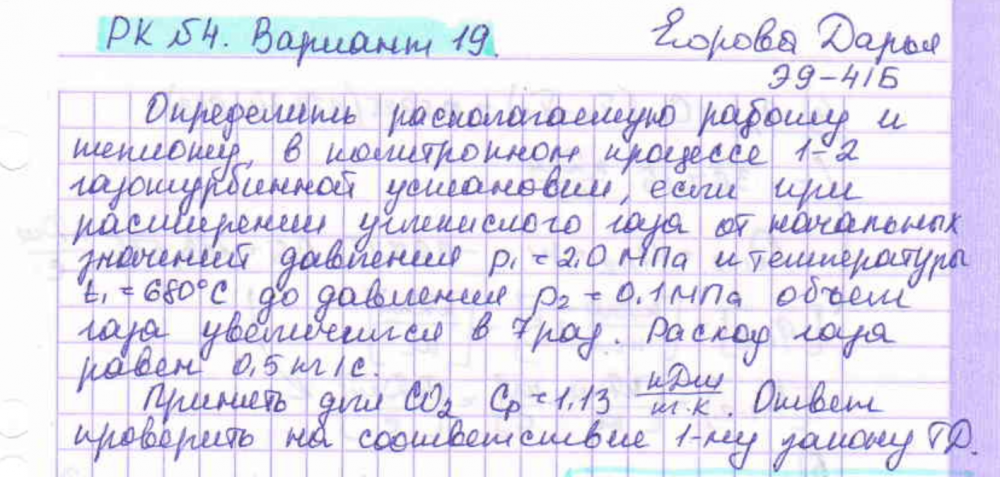 РК №4. Вариант 19.
Егорова Дарья
Э9-41Б
Определить располагаемую работу и
теплоту, в политропном процессе 1-2
газотурбинной установки, если при
расширении углекислого газа от начальных
значений давления p₁ = 2,0 МПа и температуры
t₁ = 680°С до давления p₂ = 0,1 МПа объем
газа увеличился в 7 раз. Расход газа
равен 0,5 кг/с.
Принять для CO₂ Cp = 1,13 кДж/кг·К. Ответ
проверить на соответствие 1-му закону ТД.